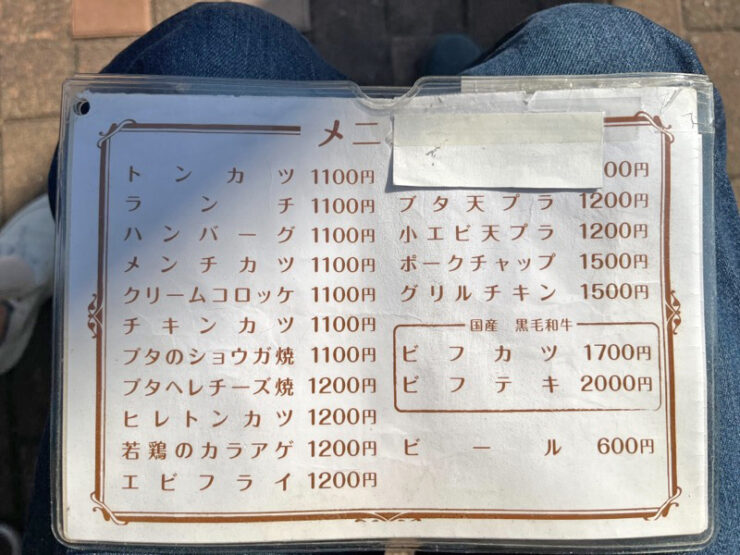 メニ
トンカツ 1100円
ランチ 1100円
ハンバーグ 1100円
メンチカツ 1100円
クリームコロッケ 1100円
チキンカツ 1100円
ブタのショウガ焼 1100円
ブタヘレチーズ焼 1200円
ヒレトンカツ 1200円
若鶏のカラアゲ 1200円
エビフライ 1200円
00円
ブタ天プラ 1200円
小エビ天プラ 1200円
ポークチャップ 1500円
グリルチキン 1500円
国産 黒毛和牛
ビフカツ 1700円
ビフテキ 2000円
ビール 600円